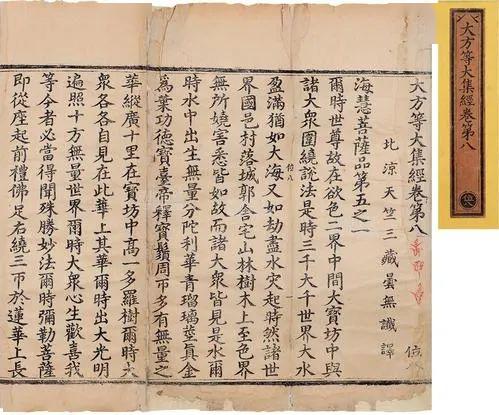 大方等大集經卷第八
大方等大集經卷第八
北涼天竺三藏曇無讖譯
海慧菩薩品第五之一
爾時世尊故在欲色二界中間大寶坊中與
諸大衆圍繞說法是時三千大千世界大水
盈滿猶如大海又如劫盡水災起時然諸世
界國邑村落城郭舍宅山林樹木上至色界
無所嬈害悉皆如故而諸大衆皆見是水爾
時水中出生無量分陀利華青瑠璃莖真金
爲葉功德寶臺帝釋寶鬚周帀多有無量之
華縱廣十里在寶坊中高一多羅樹爾時大
衆各各自見在此華上其華爾時出大光明
遍照十方無量世界爾時大衆心生歡喜我
等今者必當得聞殊勝妙法爾時彌勒菩薩
即從座起前禮佛足右繞三帀於蓮華上長